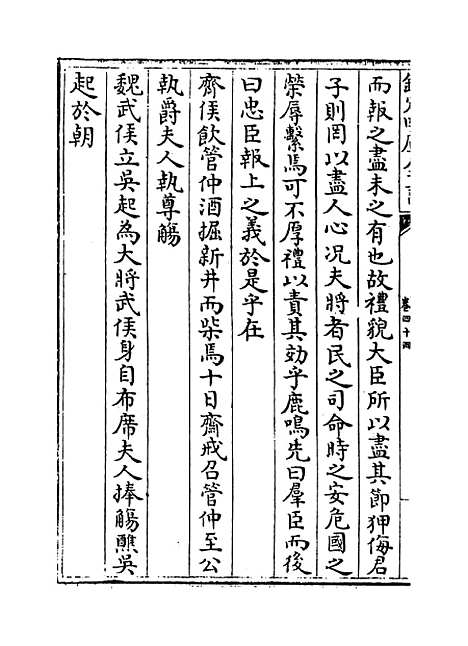 欽定四庫全書
卷四十四
而報之盡未之有也故禮貌大臣所以盡其節狎侮君
子則罔以盡人心况夫將者民之司命時之安危國之
榮辱繫焉可不厚禮以責其効乎鹿鳴先曰羣臣而後
曰忠臣報上之義於是乎在
齊侯飲管仲酒掘新井而柴焉十日齋戒召管仲至公
執爵夫人執尊觴
魏武侯立吳起為大將武侯身自布席夫人捧觴醮吳
起於朝